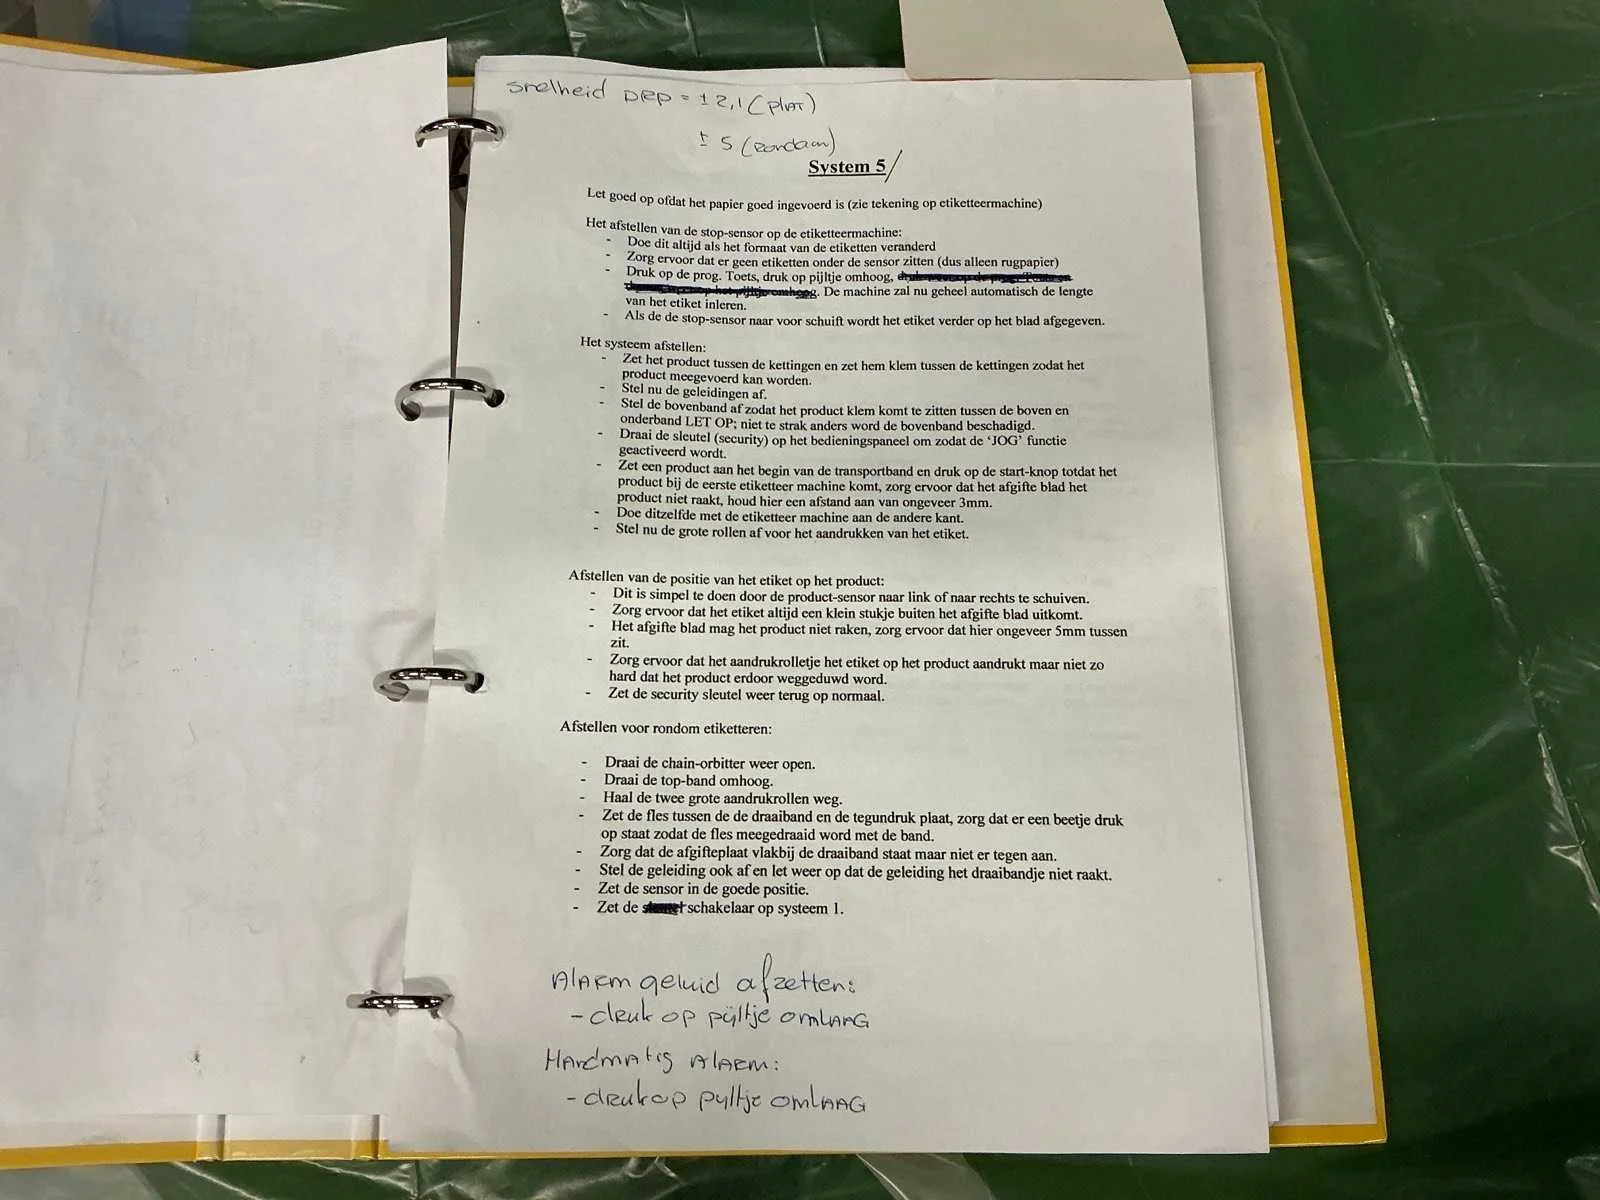 snelheid DRD = ± 2,1 (plAT)
± 5 (Rondom)
System 5/
Let goed op ofdat het papier goed ingevoerd is (zie tekening op etiketteermachine)
Het afstellen van de stop-sensor op de etiketteermachine:
- Doe dit altijd als het formaat van de etiketten veranderd
- Zorg ervoor dat er geen etiketten onder de sensor zitten (dus alleen rugpapier)
- Druk op de prog. Toets, druk op pijltje omhoog,
De machine zal nu geheel automatisch de lengte
van het etiket inleren.
- Als de de stop-sensor naar voor schuift wordt het etiket verder op het blad afgegeven.
Het systeem afstellen:
- Zet het product tussen de kettingen en zet hem klem tussen de kettingen zodat het
product meegevoerd kan worden.
- Stel nu de geleidingen af.
- Stel de bovenband af zodat het product klem komt te zitten tussen de boven en
onderband LET OP; niet te strak anders word de bovenband beschadigd.
- Draai de sleutel (security) op het bedieningspaneel om zodat de ‘JOG’ functie
geactiveerd wordt.
- Zet een product aan het begin van de transportband en druk op de start-knop totdat het
product bij de eerste etiketteer machine komt, zorg ervoor dat het afgifte blad het
product niet raakt, houd hier een afstand aan van ongeveer 3mm.
- Doe ditzelfde met de etiketteer machine aan de andere kant.
- Stel nu de grote rollen af voor het aandrukken van het etiket.
Afstellen van de positie van het etiket op het product:
- Dit is simpel te doen door de product-sensor naar link of naar rechts te schuiven.
- Zorg ervoor dat het etiket altijd een klein stukje buiten het afgifte blad uitkomt.
- Het afgifte blad mag het product niet raken, zorg ervoor dat hier ongeveer 5mm tussen
zit.
- Zorg ervoor dat het aandrukrolletje het etiket op het product aandrukt maar niet zo
hard dat het product erdoor weggeduwd word.
- Zet de security sleutel weer terug op normaal.
Afstellen voor rondom etiketteren:
- Draai de chain-orbitter weer open.
- Draai de top-band omhoog.
- Haal de twee grote aandrukrollen weg.
- Zet de fles tussen de de draaiband en de tegundruk plaat, zorg dat er een beetje druk
op staat zodat de fles meegedraaid word met de band.
- Zorg dat de afgifteplaat vlakbij de draaiband staat maar niet er tegen aan.
- Stel de geleiding ook af en let weer op dat de geleiding het draaibandje niet raakt.
- Zet de sensor in de goede positie.
- Zet de schakelaar op systeem 1.
Alarm geluid afzetten:
- druk op pijltje omlAAG
Handmatig Alarm:
- druk op pijltje omlAAG